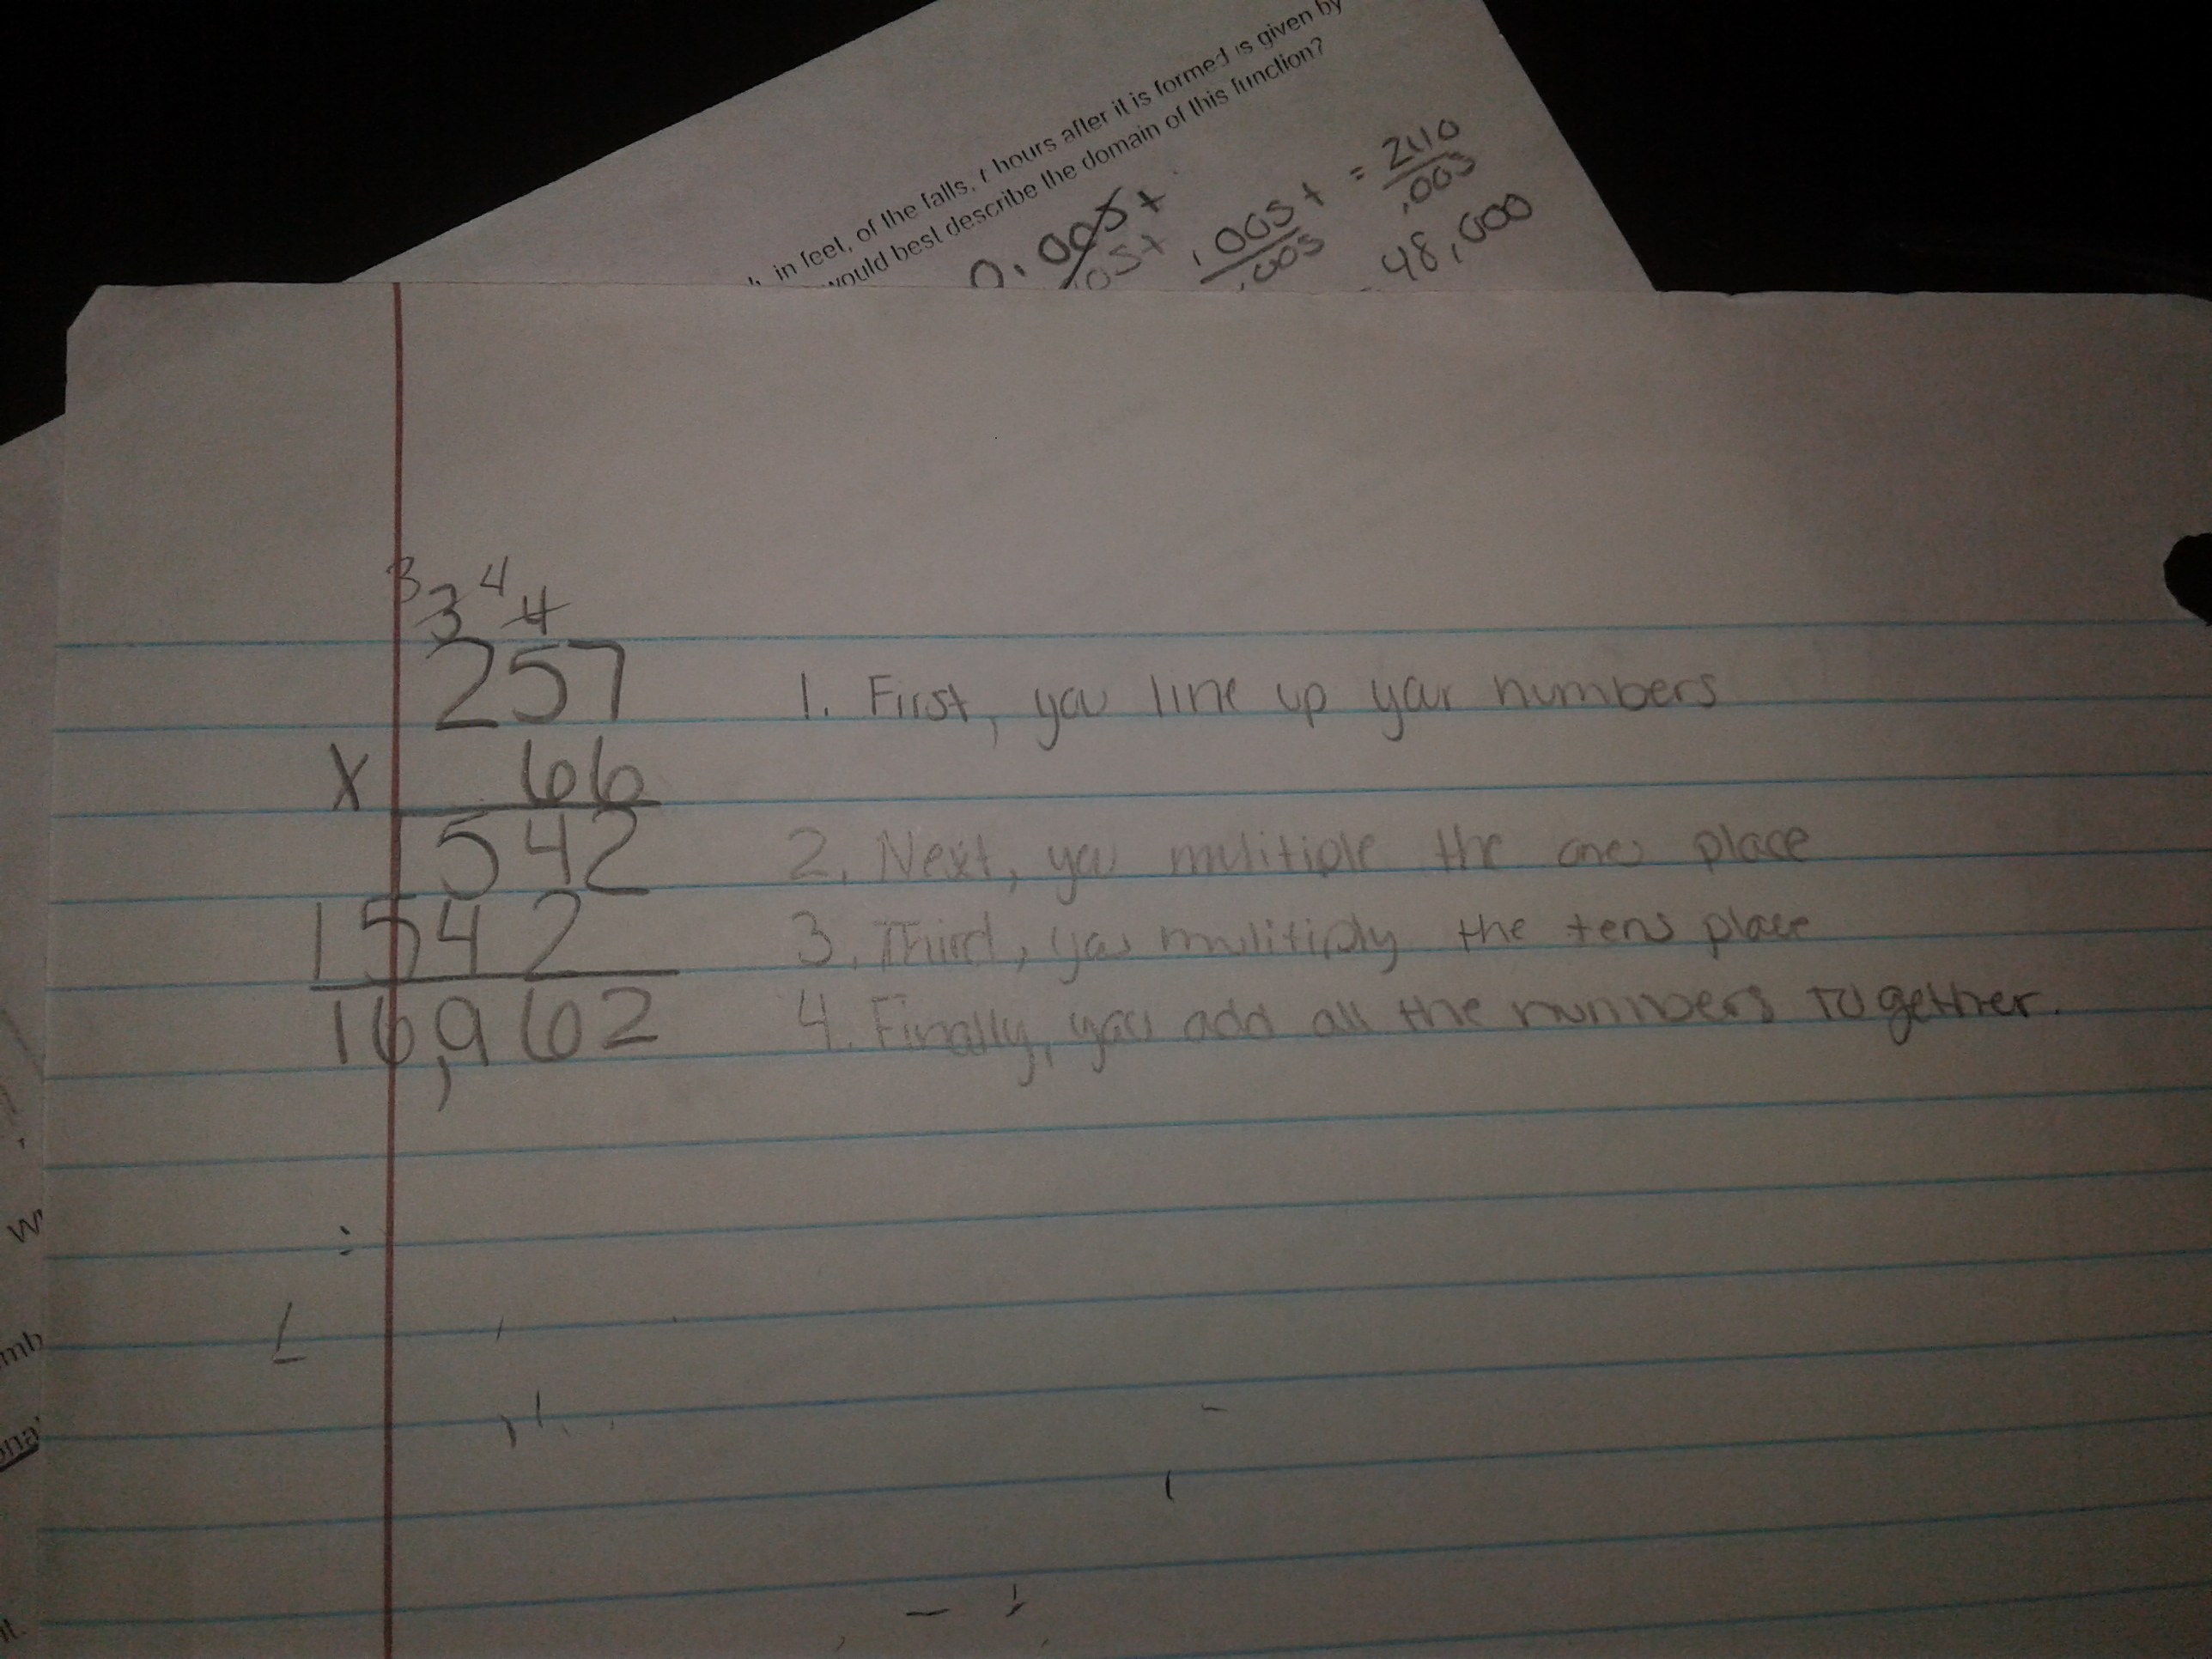 h, in feet, of the falls, t hours after it is formed is given by
would best describe the domain of this function?
0.005t
.005t
.005t = 240
.005 .005
48,000
3 3 4 4
257 1. First, you line up your numbers
X 66
1542 2. Next, you mulitiple the ones place
1542 3. Third, you mulitiply the tens place
16,962 4. Finally, you add all the numbers together.